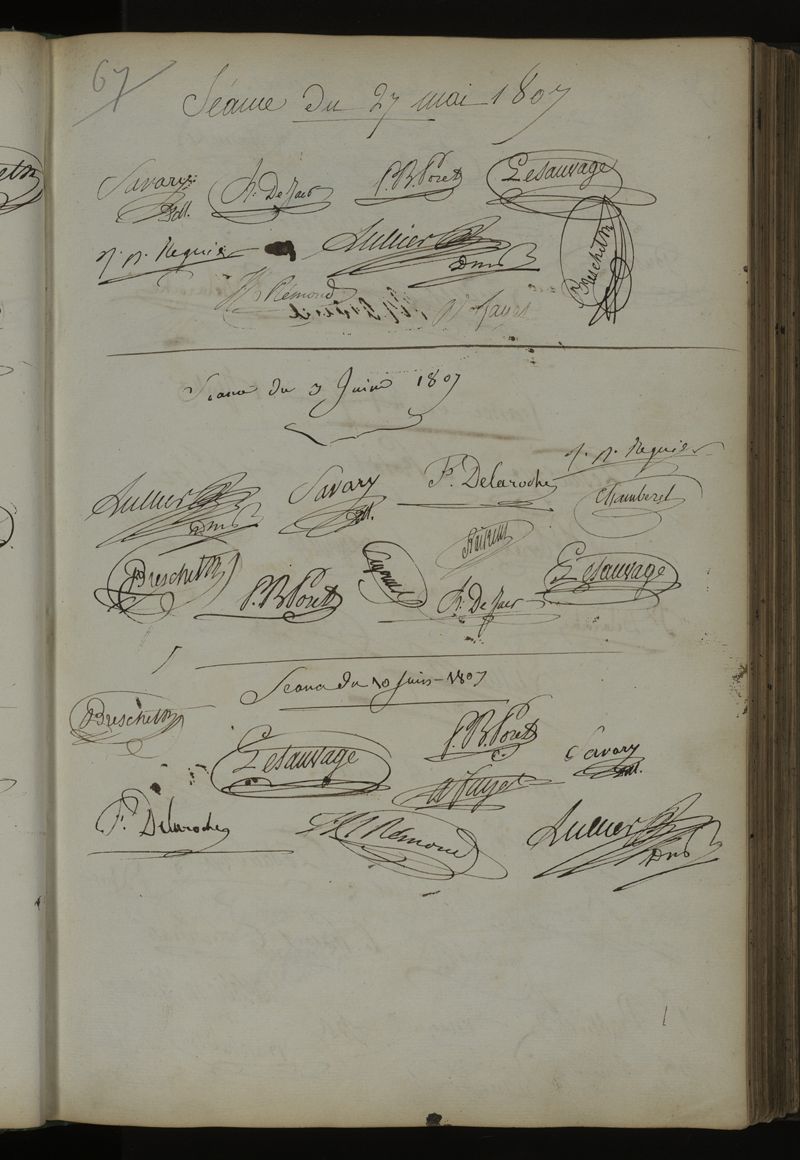 67
Séance du 27 mai 1807
Savary
Ch. De Jaer P. B. Poret Lesauvage
J. N. Regnier Lullier Dms
Breschet
H Rémond Fayet
Séance du 3 Juin 1807
J. N. Regnier
Lullier Dms Savary F. Delaroche Chamberet
Breschet P. B. Poret Ch. De Jaer Lesauvage
Séance du 10 Juin 1807
Breschet
Lesauvage P. B. Poret Savary
Fayet
F. Delaroche H Rémond Lullier Dms